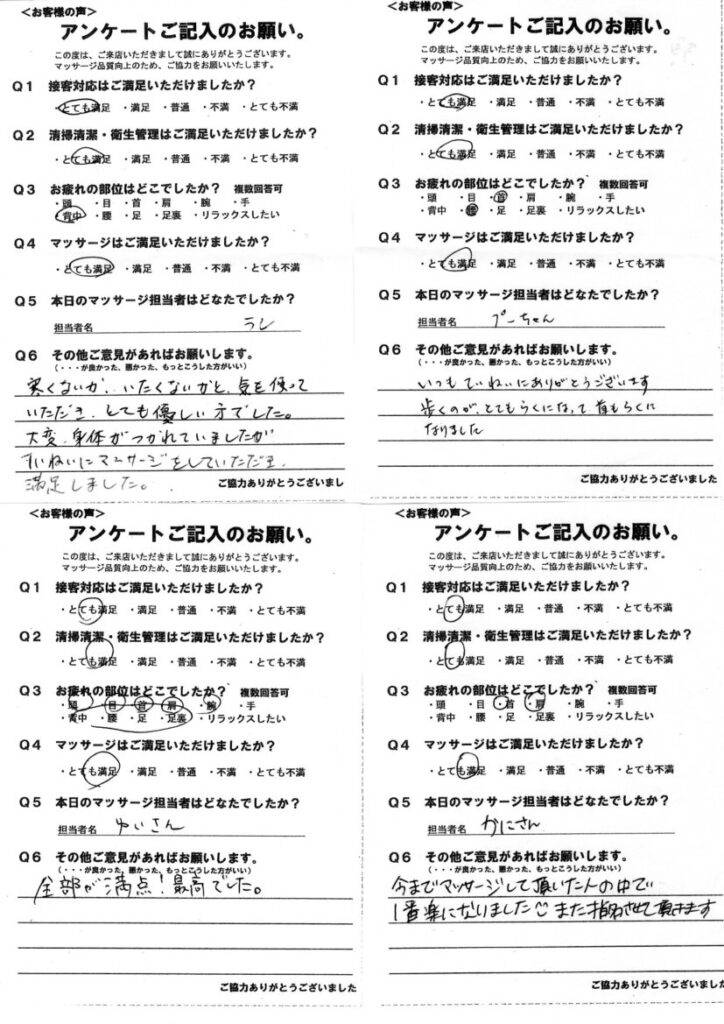 ＜お客様の声＞
アンケートご記入のお願い。
この度は、ご来店いただきまして誠にありがとうございます。
マッサージ品質向上のため、ご協力をお願いいたします。
Q1 接客対応はご満足いただけましたか？
・とても満足 ・満足 ・普通 ・不満 ・とても不満
Q2 清掃清潔・衛生管理はご満足いただけましたか？
・とても満足 ・満足 ・普通 ・不満 ・とても不満
Q3 お疲れの部位はどこでしたか？ 複数回答可
・頭 ・目 ・首 ・肩 ・腕 ・手
・背中 ・腰 ・足 ・足裏 ・リラックスしたい
Q4 マッサージはご満足いただけましたか？
・とても満足 ・満足 ・普通 ・不満 ・とても不満
Q5 本日のマッサージ担当者はどなたでしたか？
担当者名 ラン
Q6 その他ご意見があればお願いします。
（・・・が良かった、悪かった、もっとこうした方がいい）
寒くないか、いたくないかと、気を使って
いただき、とても優しい方でした。
大変、身体がつかれていましたが
ていねいにマッサージをしていただき
満足しました。
ご協力ありがとうございまし
＜お客様の声＞
アンケートご記入のお願い。
この度は、ご来店いただきまして誠にありがとうございます。
マッサージ品質向上のため、ご協力をお願いいたします。
Q1 接客対応はご満足いただけましたか？
・とても満足 ・満足 ・普通 ・不満 ・とても不満
Q2 清掃清潔・衛生管理はご満足いただけましたか？
・とても満足 ・満足 ・普通 ・不満 ・とても不満
Q3 お疲れの部位はどこでしたか？ 複数回答可
・頭 ・目 ・首 ・肩 ・腕 ・手
・背中 ・腰 ・足 ・足裏 ・リラックスしたい
Q4 マッサージはご満足いただけましたか？
・とても満足 ・満足 ・普通 ・不満 ・とても不満
Q5 本日のマッサージ担当者はどなたでしたか？
担当者名 プーちゃん
Q6 その他ご意見があればお願いします。
（・・・が良かった、悪かった、もっとこうした方がいい）
いつもていねいにありがとうございます
歩くのが、とてもらくになって首もらくに
なりました
ご協力ありがとうございました
＜お客様の声＞
アンケートご記入のお願い。
この度は、ご来店いただきまして誠にありがとうございます。
マッサージ品質向上のため、ご協力をお願いいたします。
Q1 接客対応はご満足いただけましたか？
・とても満足 ・満足 ・普通 ・不満 ・とても不満
Q2 清掃清潔・衛生管理はご満足いただけましたか？
・とても満足 ・満足 ・普通 ・不満 ・とても不満
Q3 お疲れの部位はどこでしたか？ 複数回答可
・頭 ・目 ・首 ・肩 ・腕 ・手
・背中 ・腰 ・足 ・足裏 ・リラックスしたい
Q4 マッサージはご満足いただけましたか？
・とても満足 ・満足 ・普通 ・不満 ・とても不満
Q5 本日のマッサージ担当者はどなたでしたか？
担当者名 ゆいさん
Q6 その他ご意見があればお願いします。
（・・・が良かった、悪かった、もっとこうした方がいい）
全部が満点！最高でした。
ご協力ありがとうございました
＜お客様の声＞
アンケートご記入のお願い。
この度は、ご来店いただきまして誠にありがとうございます。
マッサージ品質向上のため、ご協力をお願いいたします。
Q1 接客対応はご満足いただけましたか？
・とても満足 ・満足 ・普通 ・不満 ・とても不満
Q2 清掃清潔・衛生管理はご満足いただけましたか？
・とても満足 ・満足 ・普通 ・不満 ・とても不満
Q3 お疲れの部位はどこでしたか？ 複数回答可
・頭 ・目 ・首 ・肩 ・腕 ・手
・背中 ・腰 ・足 ・足裏 ・リラックスしたい
Q4 マッサージはご満足いただけましたか？
・とても満足 ・満足 ・普通 ・不満 ・とても不満
Q5 本日のマッサージ担当者はどなたでしたか？
担当者名 かにさん
Q6 その他ご意見があればお願いします。
（・・・が良かった、悪かった、もっとこうした方がいい）
今までマッサージして頂いた人の中で
1番楽になりました☺また指名させて頂きます
ご協力ありがとうございました